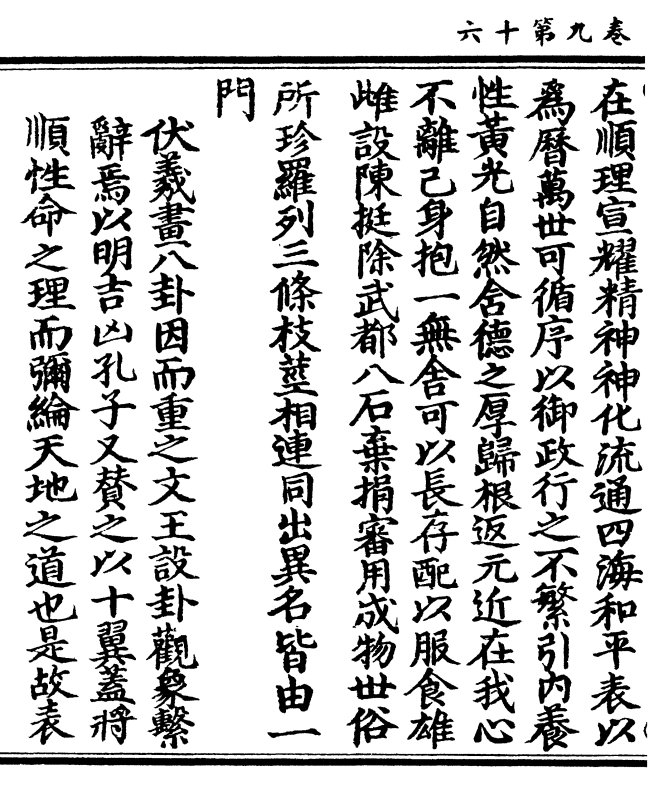 卷九第十六
在順理宣耀精神神化流通四海和平表以
為曆萬世可循序以御政行之不繁引內養
性黃光自然含德之厚歸根返元近在我心
不離己身抱一無舍可以長存配以服食雄
雌設陳挺除武都八石棄捐審用成物世俗
所珍羅列三條枝莖相連同出異名皆由一
門
伏羲畫八卦因而重之文王設卦觀象繫
辭焉以明吉凶孔子又贊之以十翼蓋將
順性命之理而彌綸天地之道也是故表